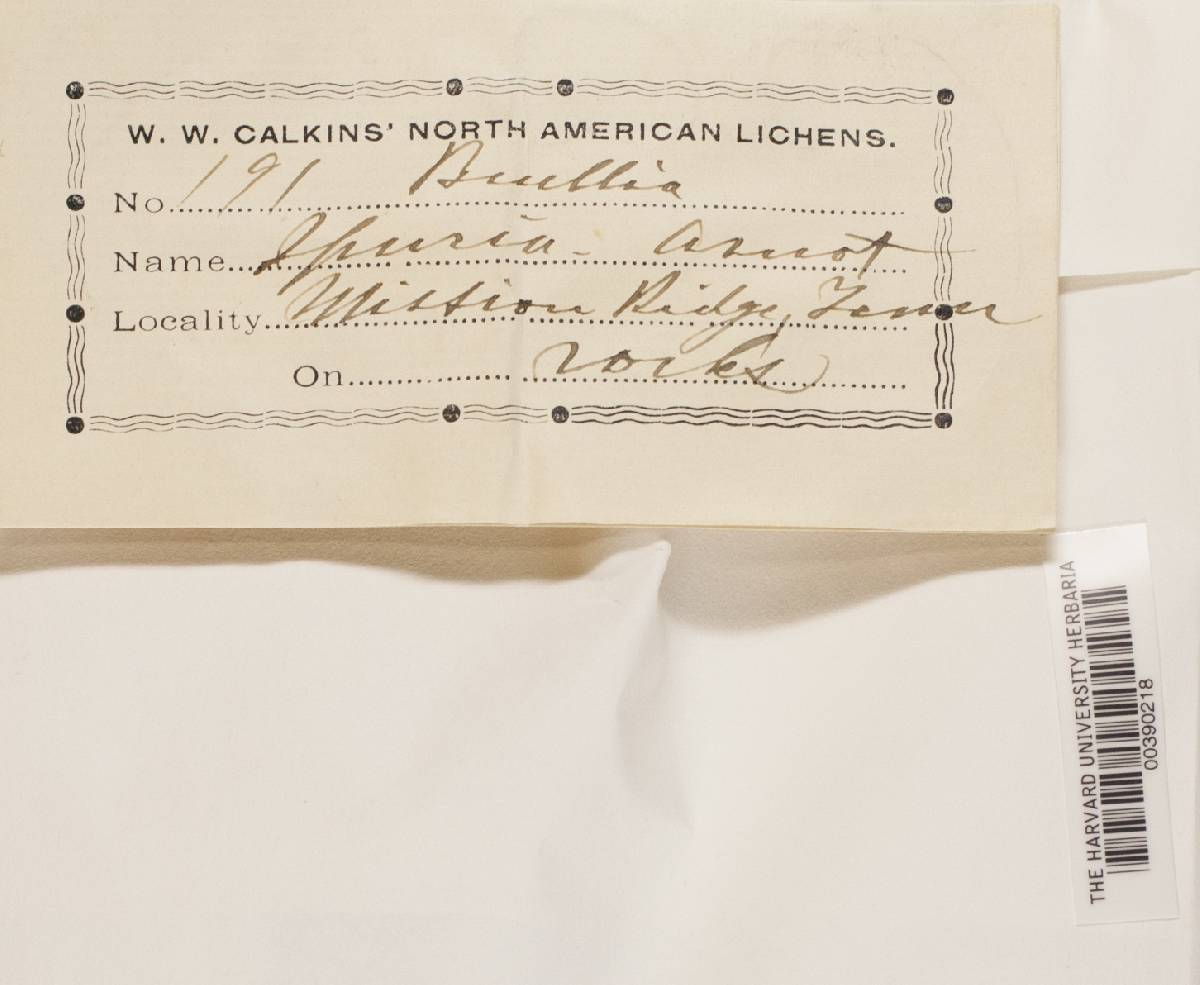 W. W. CALKINS' NORTH AMERICAN LICHENS.
No. 191 Buellia
Name. Spuria - Arnot
Locality. Mission Ridge, Tenn
On. rocks
THE HARVARD UNIVERSITY HERBARIA
00390218